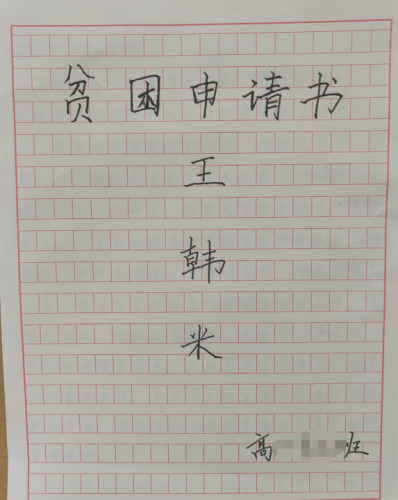 贫困申请书
王
韩
米
高一 班